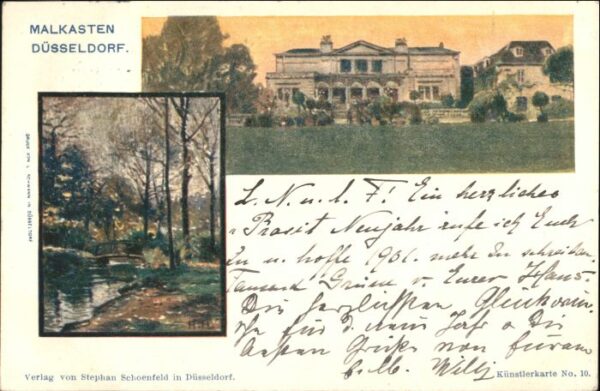 MALKASTEN
DÜSSELDORF.
L. N. u. l. F! Ein herzliches
Prosit Neujahr rufe ich Euch
zu u. hoffe 1901. mehr zu schreiben.
Tausend Grüsse v. Eurer Hans
Die herzlichsten Glückwün-
sche für d. neue Jahr u. die
besten Grüße von Eurem
Willy
Verlag von Stephan Schoenfeld in Düsseldorf.
Künstlerkarte No. 10.